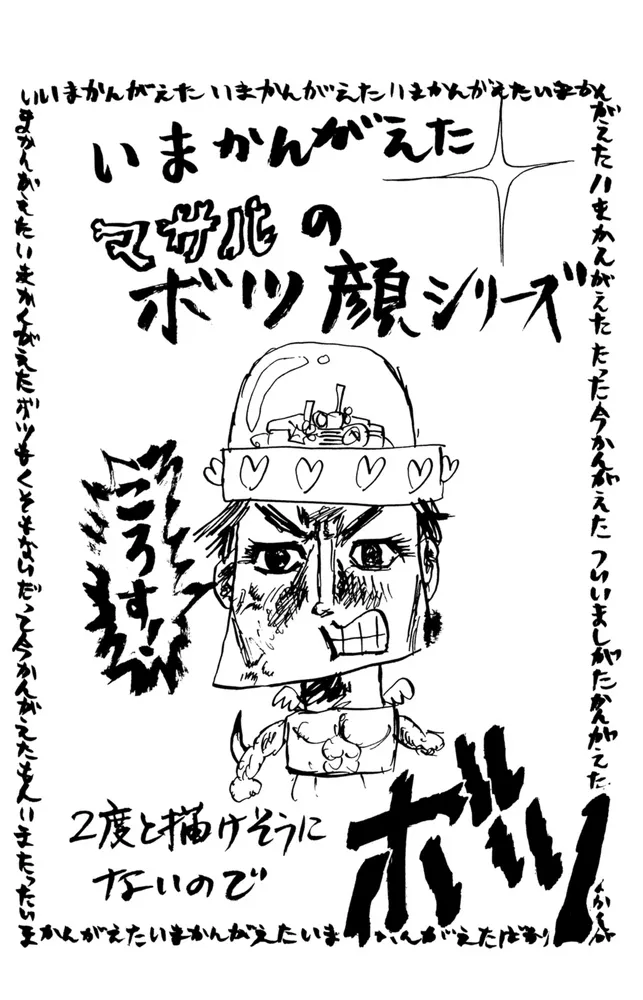 いいまかんがえたいまかんがえたいまかんがえたいまかん
がえたいまかんがえたたった今かんがえたついいましがたかんがてた
まかんがえたいまかんがえたボツもくそもないだって今かんがえたもんいまたったい
まかんがえたいまかんがえたいまかんがえたばかり
いまかんがえた
マサルの
ボツ顔シリーズ
ころす!
2度と描けそうに
ないので
ボツ